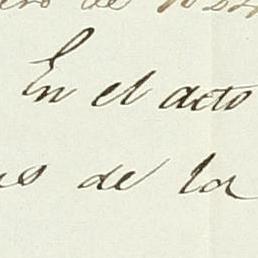 de
En el acto
de la